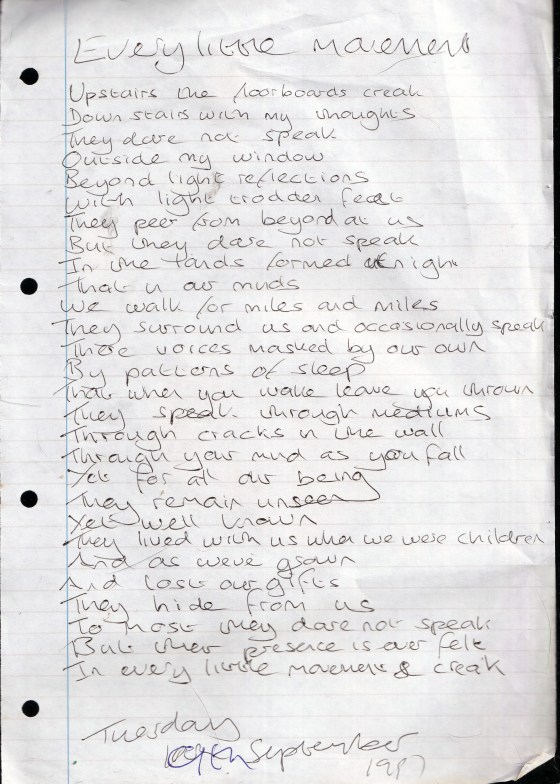 Every little movement
Upstairs the floorboards creak
Down stairs with my thoughts
They dare not speak
Outside my window
Beyond light reflections
With light trodden feet
They peer from beyond at us
But they dare not speak
In the lands formed at night
That in our minds
We walk for miles and miles
They surround us and occasionally speak
There voices masked by our own
By patterns of sleep
That when you wake leave you thrown
They speak through mediums
Through cracks in the wall
Through your mind as you fall
Yet for all our being
They remain unseen
Yet well known
They lived with us when we were children
And as weve grown
And lost our gifts
They hide from us
To most they dare not speak
But their presence is ever felt
In every little movement & creak
Tuesday
September
1987